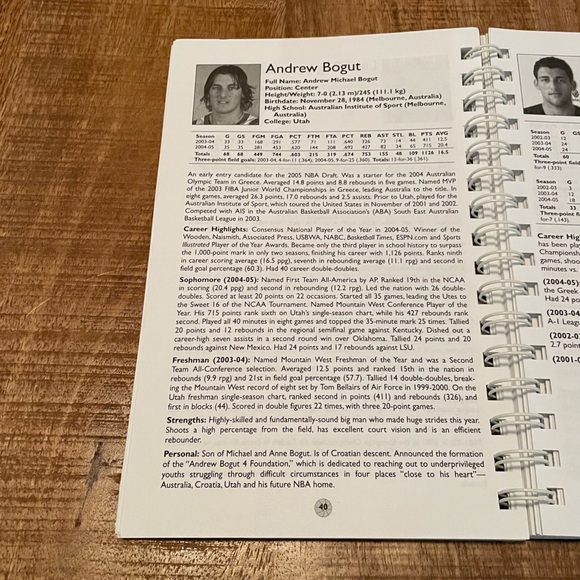 Andrew Bogut
Full Name: Andrew Michael Bogut
Position: Center
Height/Weight: 7-0 (2.13 m)/245 (111.1 kg)
Birthdate: November 28, 1984 (Melbourne, Australia)
High School: Australian Institute of Sport (Melbourne,
Australia)
College: Utah
Season G GS FGM FGA PCT FTM FTA PCT REB AST STL BL PTS AVG
2003-04 33 33 168 291 .577 71 111 .640 326 73 14 44 411 12.5
2004-05 35 35 281 453 .620 144 208 .692 427 82 34 65 715 20.4
Totals 68 68 449 744 .603 215 319 .674 753 155 48 109 1126 16.5
Three-point field goals: 2003-04, 4-for-11 (.364); 2004-05, 9-for-25 (.360). Totals: 13-for-36 (.361).
An early entry candidate for the 2005 NBA Draft. Was a starter for the 2004 Australian
Olympic Team in Greece. Averaged 14.8 points and 8.8 rebounds in five games. Named MVP
of the 2003 FIBA Junior World Championships in Greece, leading Australia to the title. In
eight games, averaged 26.3 points, 17.0 rebounds and 2.5 assists. Prior to Utah, played for the
Australian Institute of Sport, which toured the United States in November of 2001 and 2002.
Competed with AIS in the Australian Basketball Association's (ABA) South East Australian
Basketball League in 2003.
Career Highlights: Consensus National Player of the Year in 2004-05. Winner of the
Wooden, Naismith, Associated Press, USBWA, NABC, Basketball Times, ESPN.com and Sports
Illustrated Player of the Year Awards. Became only the third player in school history to surpass
the 1,000-point mark in only two seasons, finishing his career with 1,126 points. Ranks ninth
in career scoring average (16.5 ppg), seventh in rebounding average (11.1 rpg) and second in
field goal percentage (60.3). Had 40 career double-doubles.
Sophomore (2004-05): Named First Team All-America by AP. Ranked 19th in the NCAA
in scoring (20.4 ppg) and second in rebounding (12.2 rpg). Led the nation with 26 double-
doubles. Scored at least 20 points on 22 occasions. Started all 35 games, leading the Utes to
the Sweet 16 of the NCAA Tournament. Named Mountain West Conference Player of the
Year. His 715 points rank sixth on Utah's single-season chart, while his 427 rebounds rank
second. Played all 40 minutes in eight games and topped the 35-minute mark 25 times. Tallied
20 points and 12 rebounds in the regional semifinal game against Kentucky. Dished out a
career-high seven assists in a second round win over Oklahoma. Tallied 24 points and 20
rebounds against New Mexico. Had 24 points and 17 rebounds against LSU.
Freshman (2003-04): Named Mountain West Freshman of the Year and was a Second
Team All-Conference selection. Averaged 12.5 points and ranked 15th in the nation in
rebounds (9.9 rpg) and 21st in field goal percentage (57.7). Tallied 14 double-doubles, break-
ing the Mountain West record of eight set by Tom Bellairs of Air Force in 1999-2000. On the
Utah freshman single-season chart, ranked second in points (411) and rebounds (326), and
first in blocks (44). Scored in double figures 22 times, with three 20-point games.
Strengths: Highly-skilled and fundamentally-sound big man who made huge strides this year.
Shoots a high percentage from the field, has excellent court vision and is an efficient
rebounder.
Personal: Son of Michael and Anne Bogut. Is of Croatian descent. Announced the formation
of the "Andrew Bogut 4 Foundation," which is dedicated to reaching out to underprivileged
youths struggling through difficult circumstances in four places "close to his heart"—
Australia, Croatia, Utah and his future NBA home.
40
Season G GS
2002-03 12
2003-04 24
2004-05 24
Totals 60
Three-point fi
for-9 (.333).
Season G
2002-03 3
2003-04 12
2004-05 18
Totals 33
Three-point f
for-7 (.143).
Career Hig
has been play
Championsh
games, shoo
minutes vs.
(2004-05)
the Greek
Had 24 p
(2003-04
A-1 Leag
(2002-0
2.7 point
(2001-0